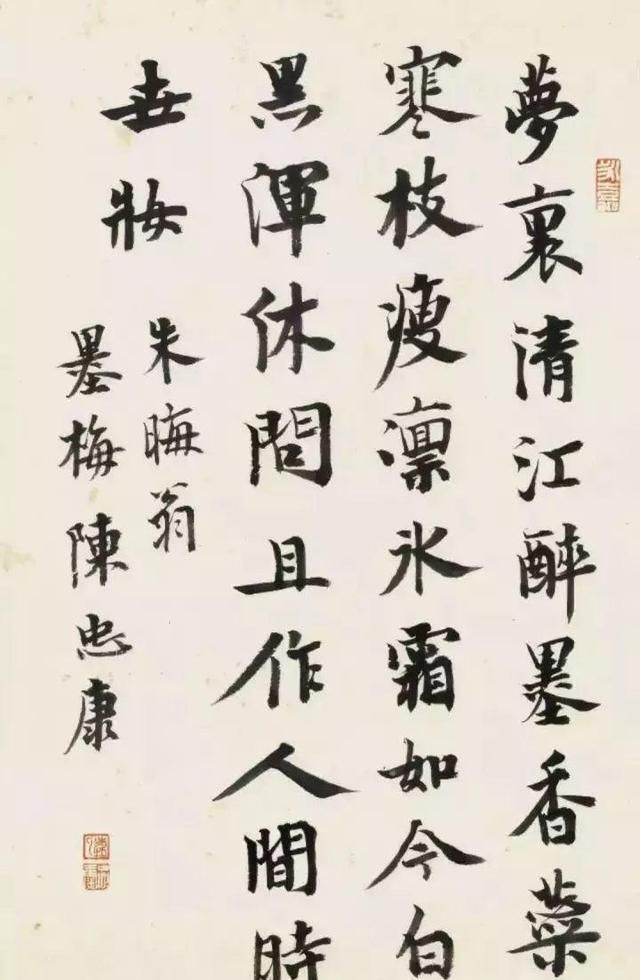 夢裏清江醉墨香蘂
寒枝瘦凜氷霜如今白
黑渾休問且作人間時
世妝
朱晦翁
墨梅陳忠康